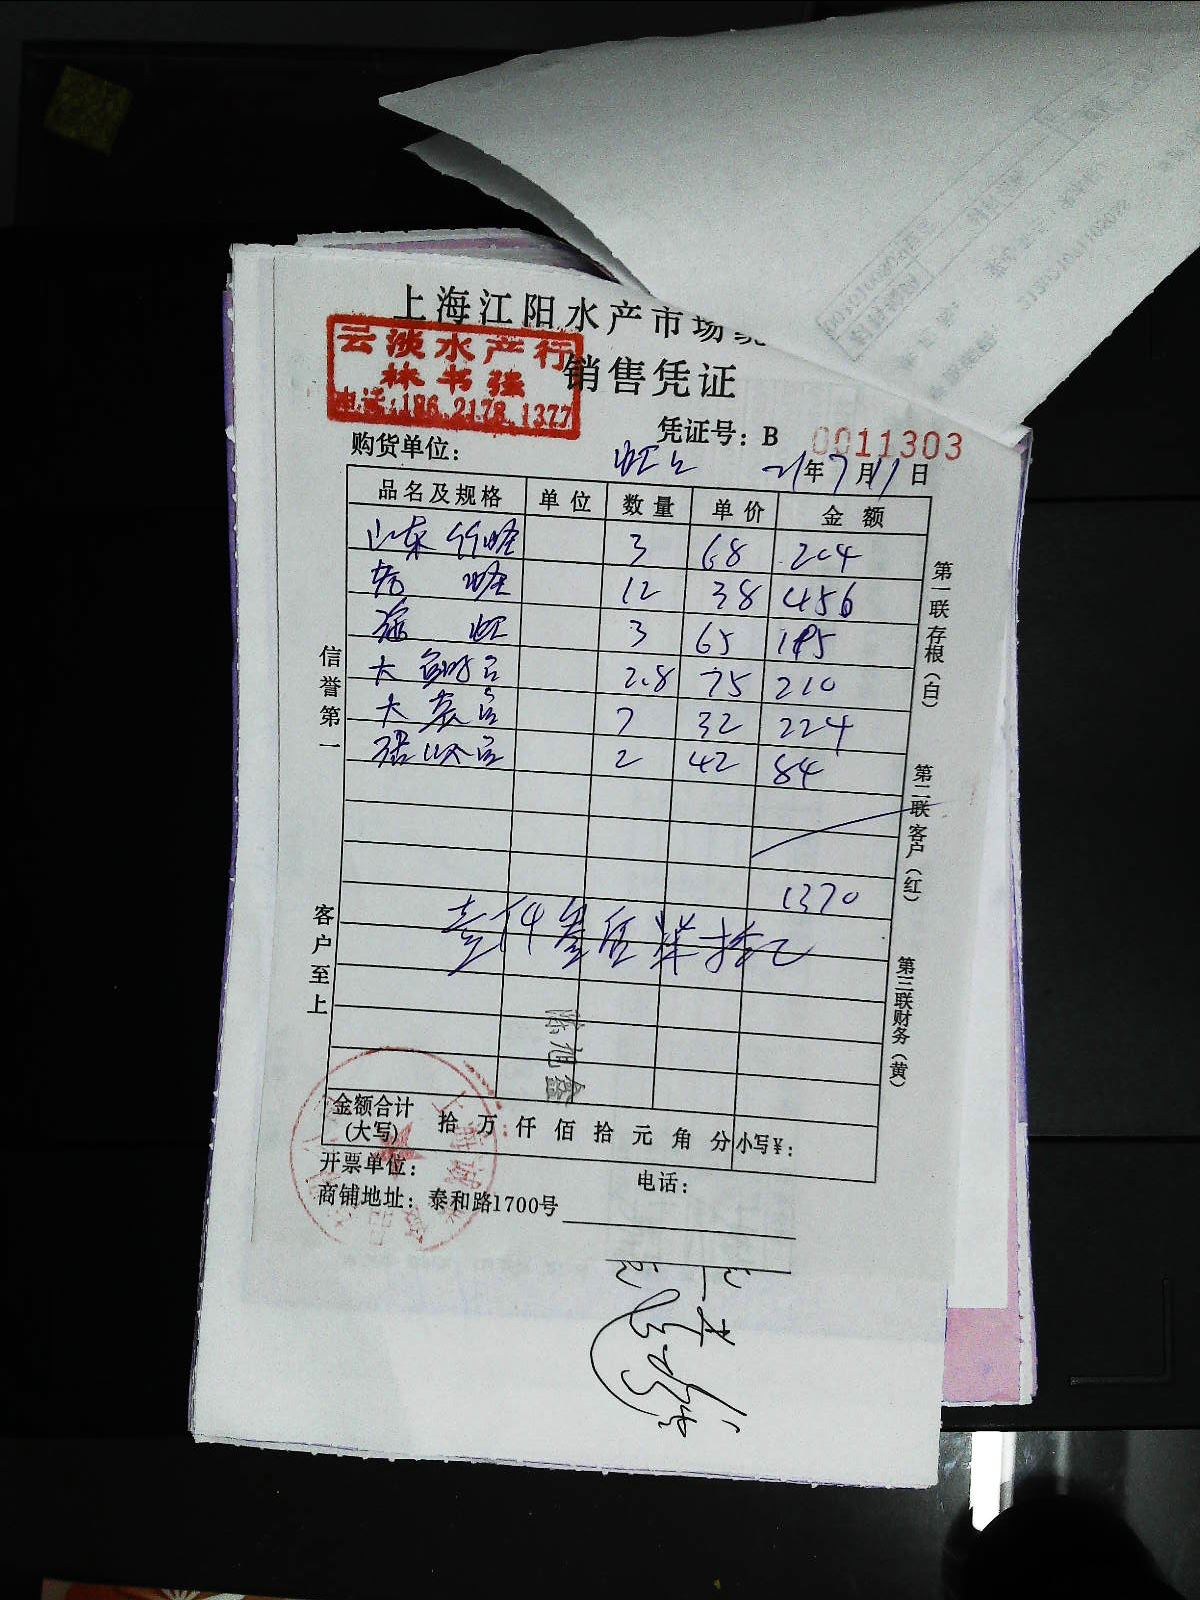 上海江阳水产市场
云淡水产行
林书强
电话:186.2178.1377
销售凭证
凭证号：B 0011303
购货单位： 21年7月11日
品名及规格 单位 数量 单价 金额
山东竹蛏 3 68 204
蛏 12 38 456
3 65 195
大 2.8 75 210
大 7 32 224
2 42 84
1370
壹仟叁佰柒拾元
陈旭鑫
金额合计(大写) 拾 万 仟 佰 拾 元 角 分 小写¥：
开票单位： 电话：
商铺地址：泰和路1700号
信誉第一
客户至上
第一联存根(白)
第二联客户(红)
第三联财务(黄)